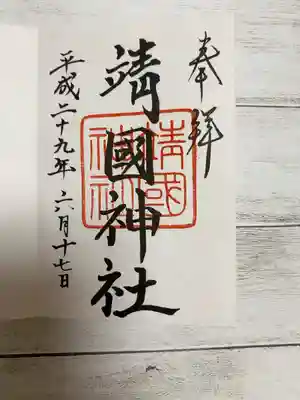 奉拝
靖國神社
靖國
神社
平成二十九年 六月十七日